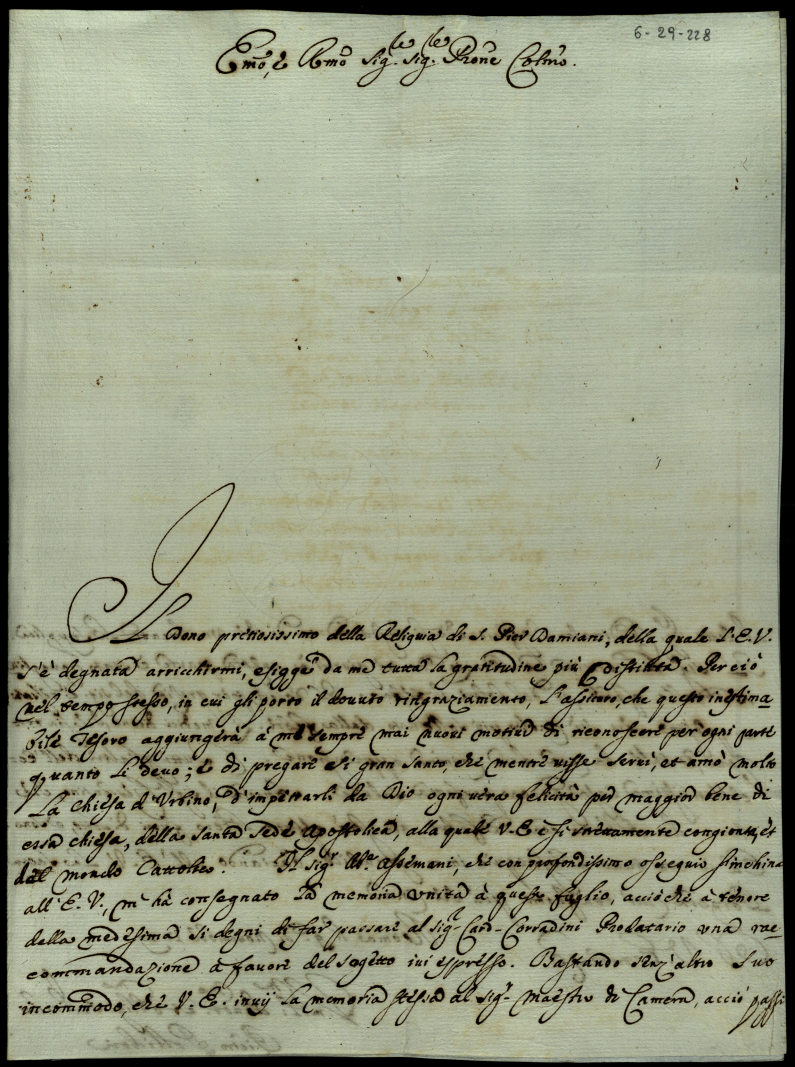 6-29-228
Emo, e Rmo Sig.re Sig.re Prone Colmo.
Il Dono pretiosissimo della Reliquia di S. Pier Damiani, della quale L'E.V.
s'è degnata arricchirmi, esigge da me tutta la gratitudine più distinta. Perciò
nel tempo stesso, in cui gli porto il dovuto ringraziamento, l'assicuro, che questo inestima=
bile Tesoro aggiungerà à me sempre mai nuovi motivi di riconoscere per ogni parte
quanto Li devo; è di pregare sì gran Santo, che mentre visse servì, et amò molto
La chiesa d'Urbino, d'impetrarli da Dio ogni vera felicità per maggior bene di
essa chiesa, della Santa Sede Apostolica, alla quale V.E. è sì strettamente congionta, et
del mondo Cattolico. Il Sig.r Ab.e Assemani, che con profondissimo ossequio s'inchina
all'E.V., m'hà consegnato La memoria unita à questo fuglio, acciò che à tenore
della medesima si degni di far passare al Sig.r Card. Corradini Prodatario una rac=
commandazione à favore del sogetto ivi espresso. Bastando senz'altro suo
incommodo, che V.E. invij La memoria stessa al Sig.r Maestro di Camera, acciò passi